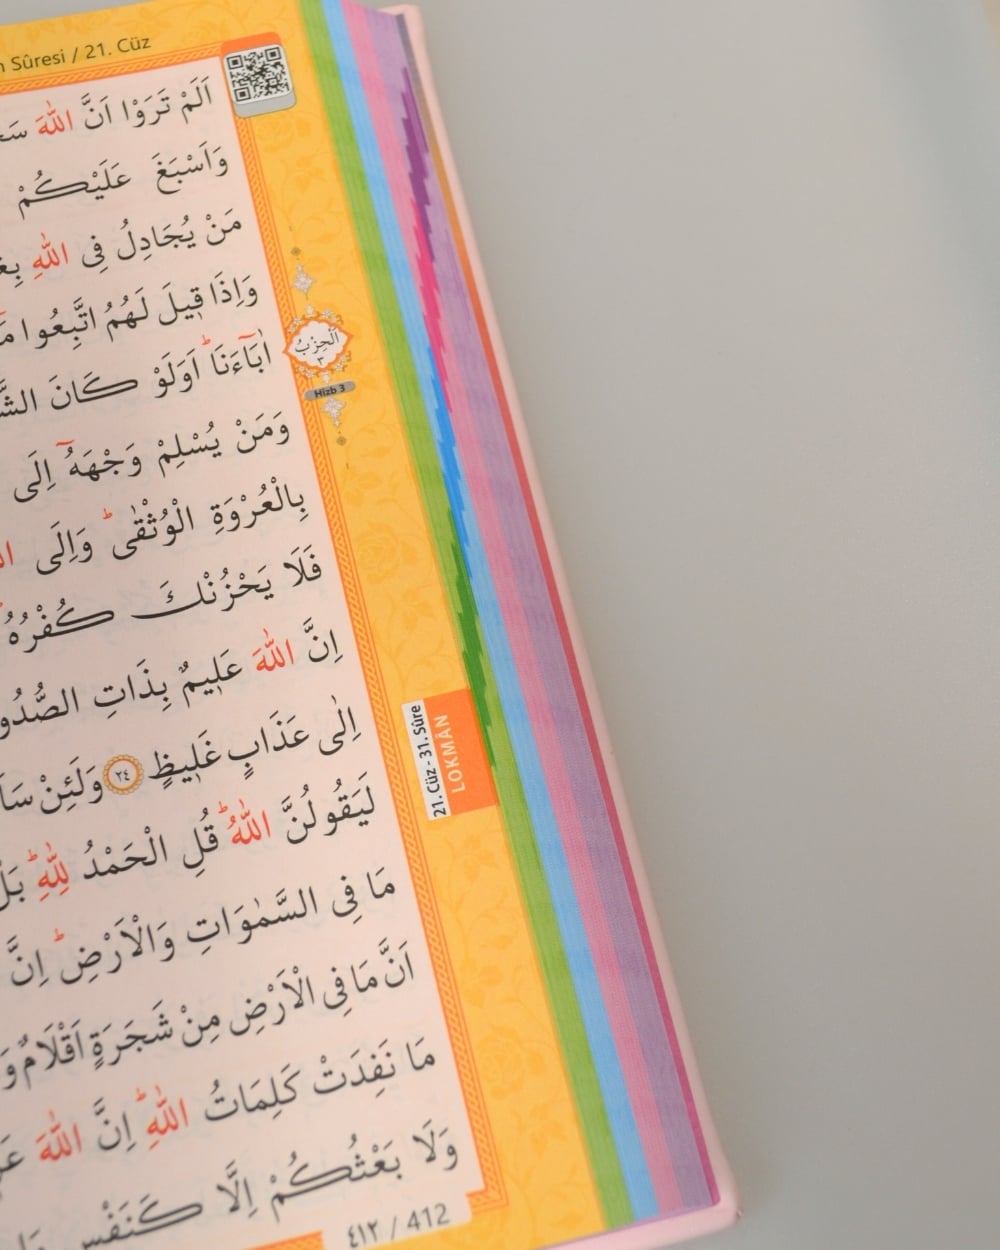 Sûresi / 21. Cüz
اَلَمْ تَرَوْا اَنَّ اللّٰهَ
وَاَسْبَغَ عَلَيْكُمْ
مَنْ يُجَادِلُ فِى اللّٰهِ
وَاِذَا قٖيلَ لَهُمُ اتَّبِعُوا
اٰبَٓاءَنَاۜ اَوَلَوْ كَانَ
وَمَنْ يُسْلِمْ وَجْهَهُٓ اِلَى
بِالْعُرْوَةِ الْوُثْقٰىۜ وَاِلَى
فَلَا يَحْزُنْكَ كُفْرُهُ
اِنَّ اللّٰهَ عَلٖيمٌ بِذَاتِ
اِلٰى عَذَابٍ غَلٖيظٍ ٢٤ وَلَئِنْ
لَيَقُولُنَّ اللّٰهُۜ قُلِ الْحَمْدُ لِلّٰهِۜ بَلْ
مَا فِى السَّمٰوَاتِ وَالْاَرْضِۜ اِنَّ
اَنَّ مَا فِى الْاَرْضِ مِنْ شَجَرَةٍ اَقْلَامٌ
مَا نَفِدَتْ كَلِمَاتُ اللّٰهِۜ اِنَّ اللّٰهَ
وَلَا بَعْثُكُمْ اِلَّا كَنَفْسٍ
اَلْحِزْبُ
٣
Hizb 3
21. Cüz - 31. Sûre
LOKMÂN
٤١٢ / 412